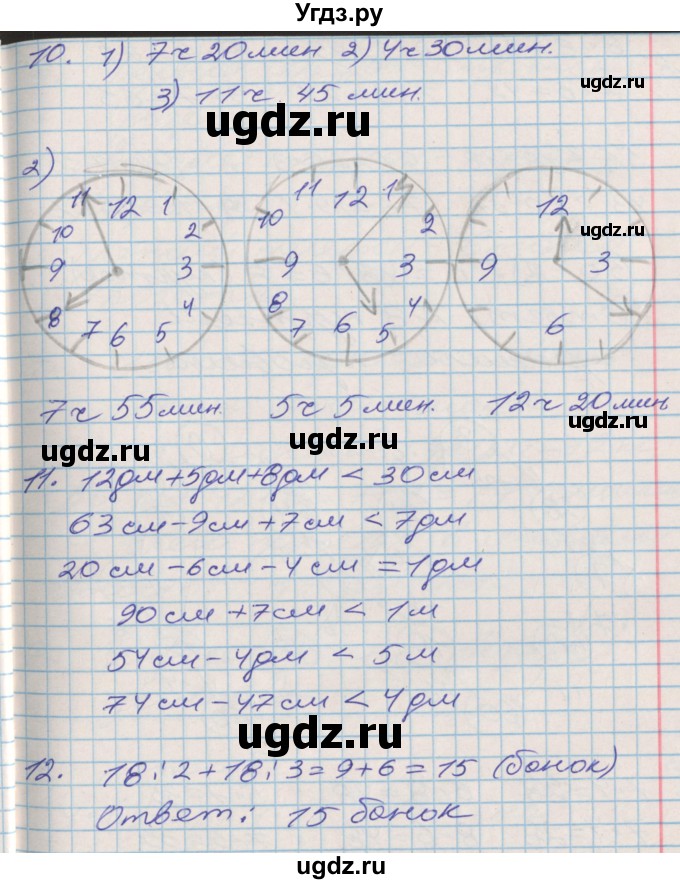 Угдз.ру
10. 1) 7ч 20мин 2) 4ч 30мин.
ugdz.ru
3) 11ч 45 мин.
ugdz.ru
ugdz.ru
2)
11 12 1
10 2
9 3
8 4
7 6 5
11 12 1
10 2
9 3
8 4
7 6 5
12
ugdz.ru
9 3
6
7ч 55мин. 5ч 5мин. 12ч 20мин
ugdz.ru
ugdz.ru
ugdz.ru
11. 12дм+5дм+8дм < 30см
63см-9см+7см < 7дм
20см-6см-4см = 1дм
ugdz.ru
90см+7см < 1м
54см-4дм < 5м
74см-47см < 4дм
ugdz.ru
ugdz.ru
12. 18:2+18:3=9+6=15 (банок)
Ответ: 15 банок
ugdz.ru
ugdz.ru